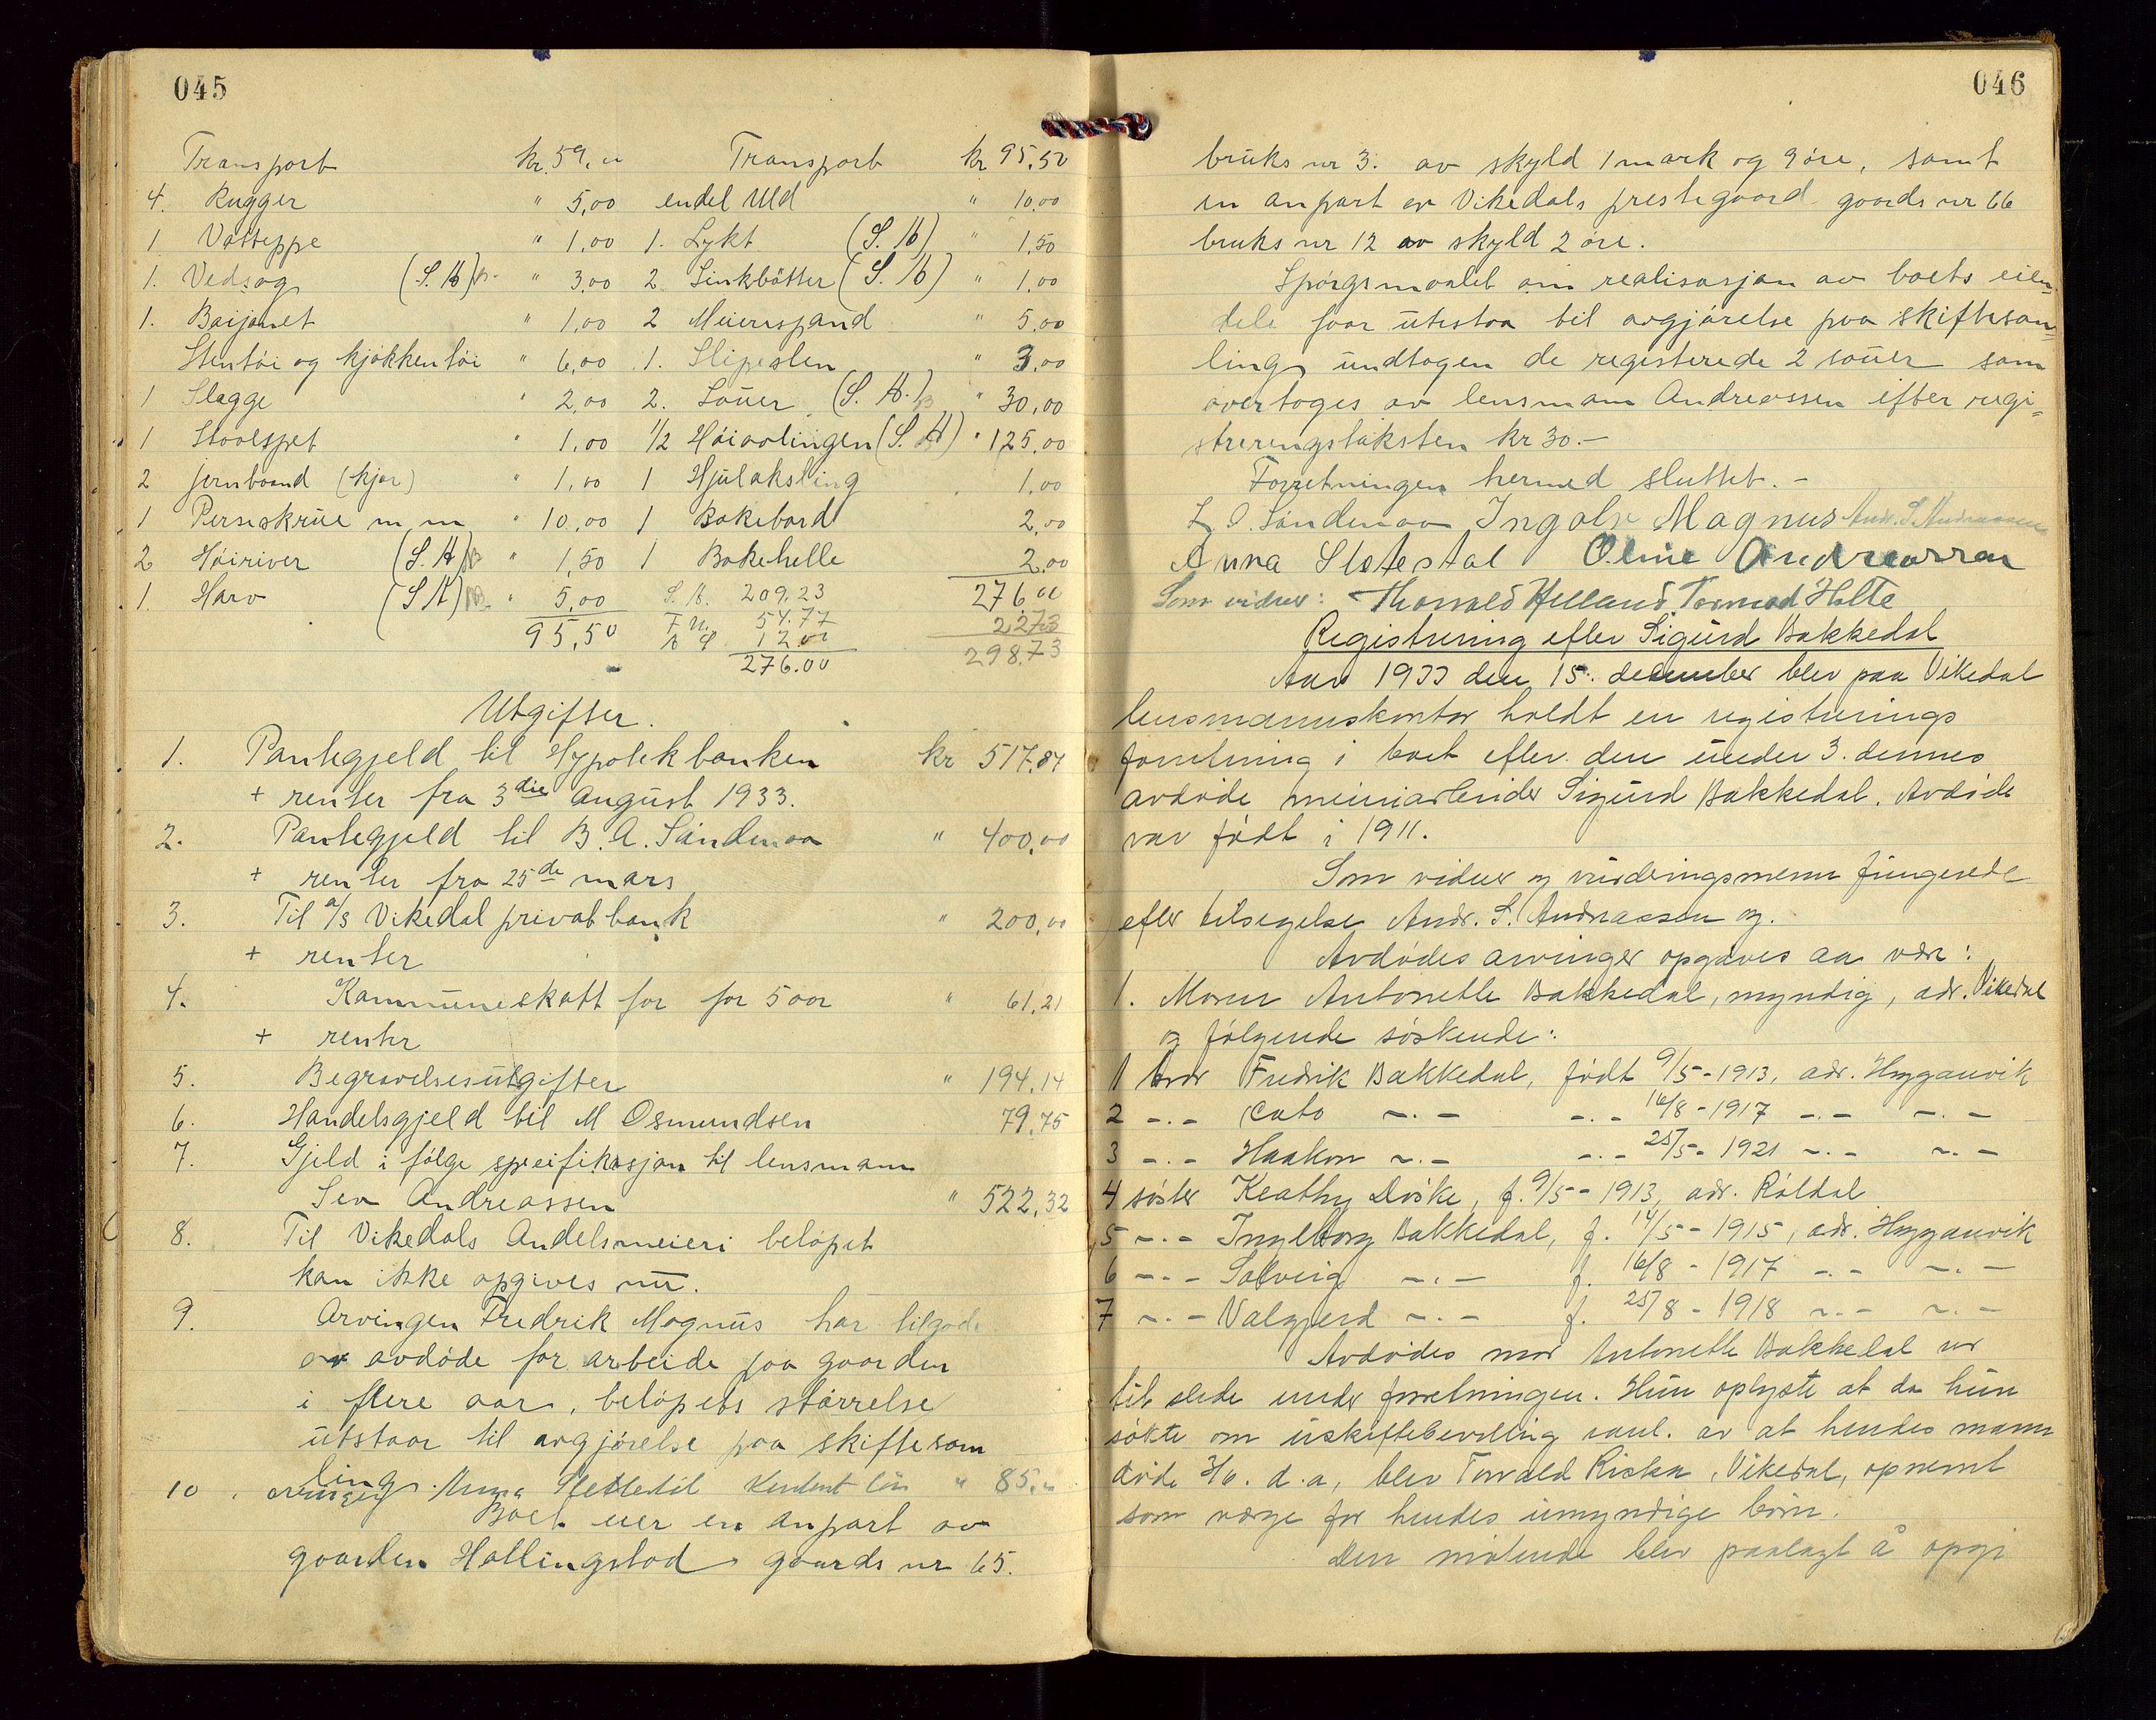 045
Transport kr. 59,00
4. Rugger " 5,00
1 Vatteppe " 1,00
1. Vedsag (S. H) " 3,00
1. Baijonet " 1,00
Stentøi og kjøkkentøi " 6,00
1 Slegge " 2,00
1 Staalspet " 1,00
2 jernbaand (kjør) " 1,00
1 Perseskrue m m " 10,00
2 Høiriver (S. H) " 1,50
1. Harv (S H) " 5,00
95,50
Transport kr 95,50
endel Uld " 10,00
1. Lykt (S. H) " 1,50
2 Sinkbøtter (S. H) " 1,00
2 Meierispand " 5,00
1. Slipesten " 3,00
2. Sauer (S. H.) " 30,00
1/2 Høiavlingen (S. H) " 125,00
1 Hjulaksling 1,00
1 Bakebord 2,00
1 Bakehelle 2,00
276,00
22,73
298,73
S. H. 209.23
F M. 54.77
12.00
276.00
Utgifter.
1. Pantegjeld til Hypotekbanken kr 517,87
+ renter fra 3die August 1933.
2. Pantegjeld til B. A. Sandenaa " 400,00
+ renter fra 25de mars
3. Til a/s Vikedal privatbank " 200,00
+ renter
4. Kommuneskatt for for 5 aar " 61,21
+ renter
5. Begravelsesutgifter " 194,14
6. Handelsgjeld til M Osmundsen 79,75
7. Gjeld i følge spesifikasjon til lensmann
Sev Andreassen " 522,32
8. Til Vikedals Andelsmeieri beløpet
kan ikke opgives nu.
9. Arvingen Fredrik Magnus har tilgode
av avdøde for arbeide paa gaarden
i flere aar, beløpets størrelse
utstaar til avgjørelse paa skiftesam
ling.
10. arving Anna Slettestøl løn " 85,00
Boet eier en anpart av
gaarden Hallingstad gaards nr 65.
046
bruks nr 3. av skyld 1 mark og 9 øre, samt
en anpart av Vikedals prestegaard gaards nr 66
bruks nr 12 av skyld 2 øre.
Spørgsmaalet om realisasjon av boets eien
dele faar utestaa til avgjørelse paa skiftesam
ling, undtagen de registerede 2 sauer som
overtoges av lensmann Andreassen efter regi=
streringstaksten kr 30.–
Forretningen hermed sluttet. –
L. O. Sandenaa Ingolv Magnus Andr. S. Andreassen
Anna Sletestøl Oline Andreassen
Som vidner: Thorvald Helland Tormod Holte
Registrering efter Sigurd Bakkedal
Aar 1933 den 15. desember blev paa Vikedal
lensmannskontor holdt en registrerings
forretning i boet efter den under 3. dennes
avdøde meieriarbeider Sigurd Bakkedal. Avdøde
var født i 1911.
Som vidner og vurderingsmenn fungerede
efter tilsigelse Andr. S. Andreassen og.
Avdødes arvinger opgaves aa være:
1. Moren Antonette Bakkedal, myndig, adr. Vikedal
og følgende søskende:
1 bror Fredrik Bakkedal, født 9/5-1913, adr. Hogganvik
2 -.- Cato -.- -.- 16/8-1917 -.- -.-
3 -.- Haakon -.- -.- 25/5-1921 -.- -.-
4 søster Keathy Døske, f. 9/5-1913, adr. Røldal
5 -.- Ingeborg Bakkedal, f. 14/5-1915, adr. Hogganvik
6 -.- Solveig -.- f. 16/8-1917 -.- -.-
7 -.- Valgjerd -.- f. 25/8-1918 -.- -.-
Avdødes mor Antonette Bakkedal var
til stede under forretningen. Hun oplyste at da hun
søkte om uskiftebevilling i anl. av at hendes mann
døde d.a, blev Torvald Riska, Vikedal, opnevnt
som verge for hendes umyndige børn.
Den møtende blev paalagt å opgi